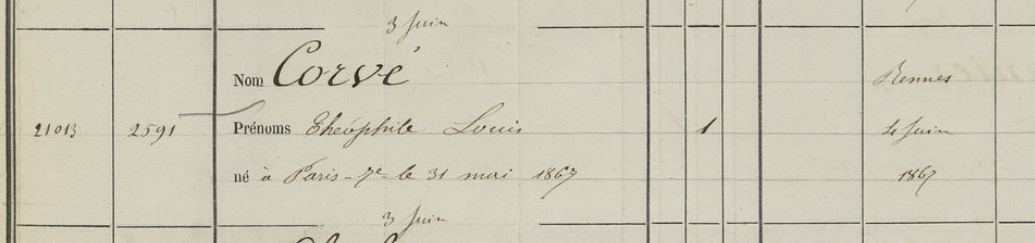 3 Juin
Nom Corvé
Rennes
21013 2591 Prénoms Théophile Louis 1 4 Juin
né à Paris - 7e le 31 mai 1867 1867
3 Juin